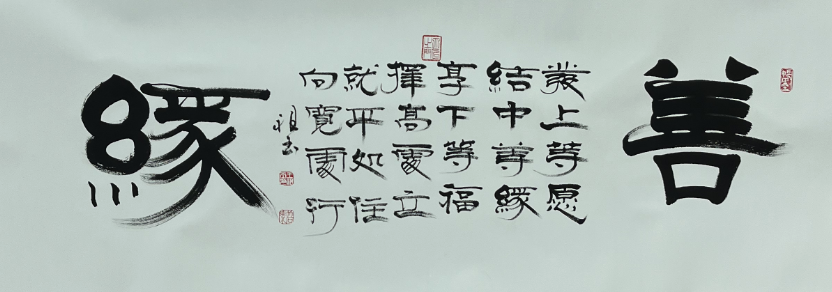 善緣
發上等愿
結中等緣
享下等福
擇高處立
就平处住
向寬處行
祖书